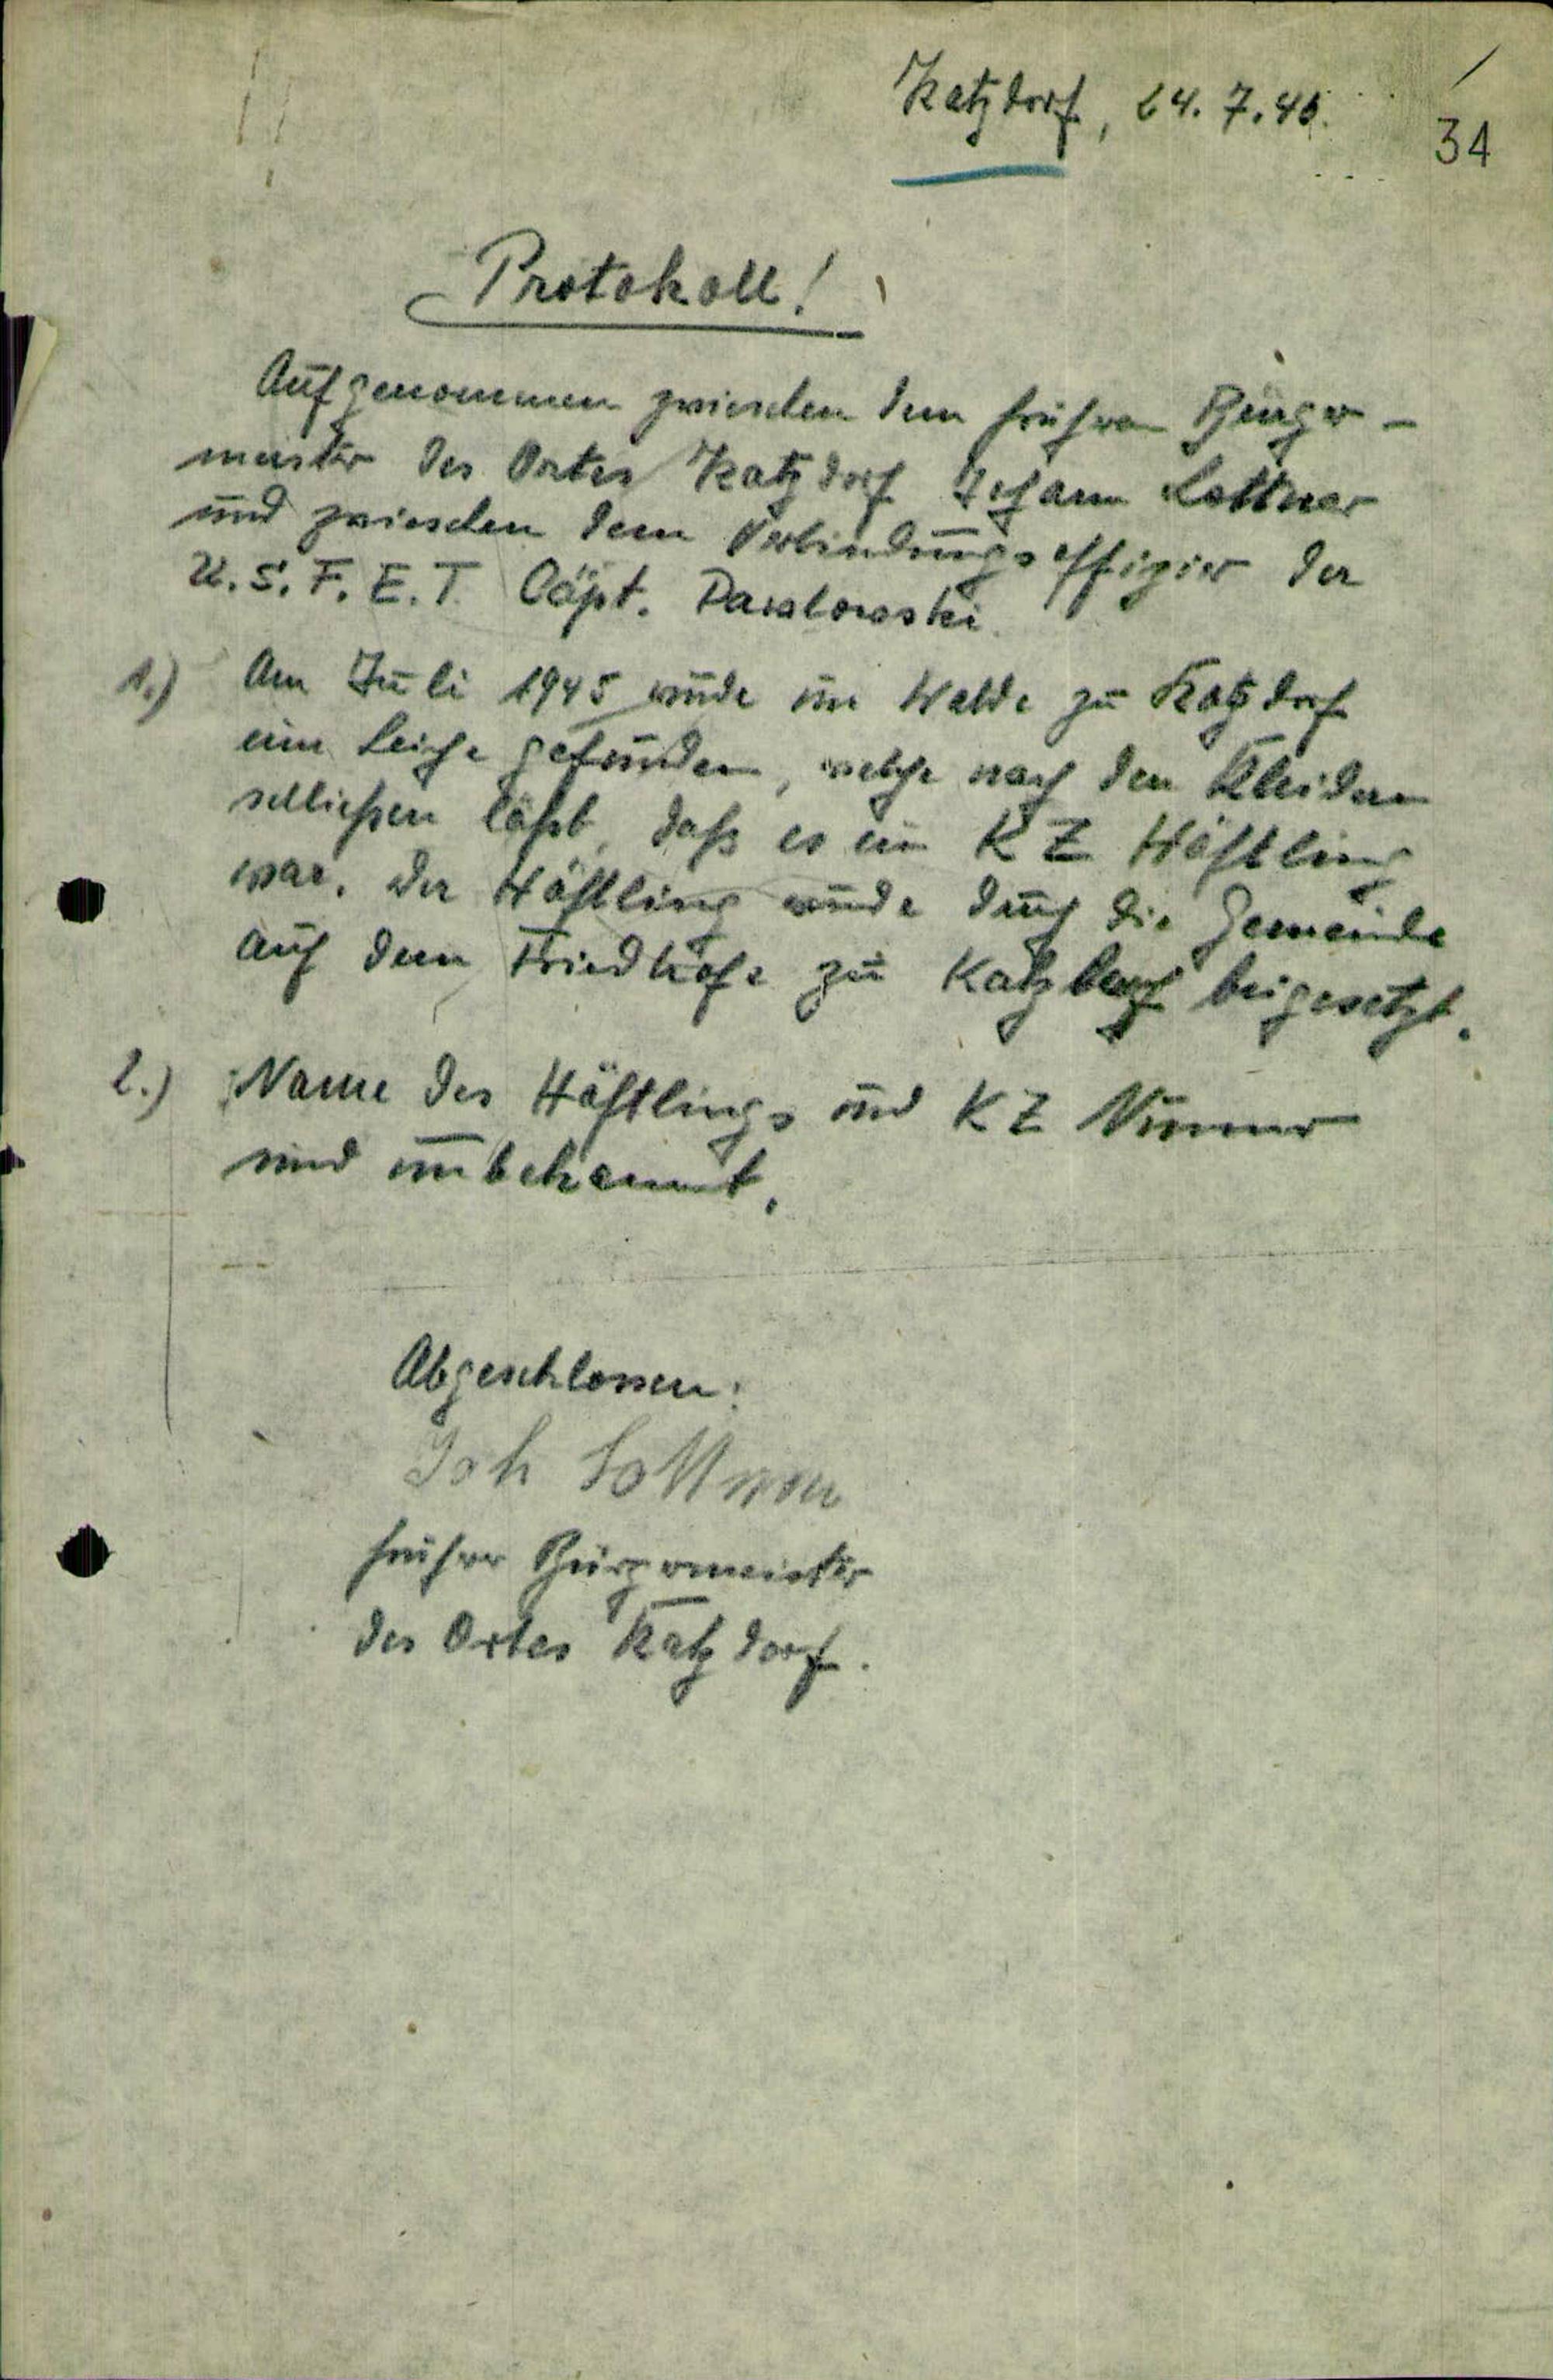 Katzdorf, 24.7.46.
34
Protokoll!
Aufgenommen zwieschen dem früheren Bürger-
meister des Ortes Katzdorf Johann Lottner
und zwieschen dem Verbindungsoffizier der
U.S.F.E.T. Cäpt. Pawlowski
1.) Am Juli 1945 wurde im Walde zu Katzdorf
eine Leiche gefunden, welche nach den Kleidern
schließen läßt, daß es ein KZ Häftling
war. Der Häftling wurde durch die Gemeinde
auf dem Friedhofe zu Katzdorf beigesetzt.
2.) Name des Häftlings und KZ Nummer
sind unbekannt.
Abgeschlossen:
Joh Lottner
früher Bürgermeister
des Ortes Katzdorf.